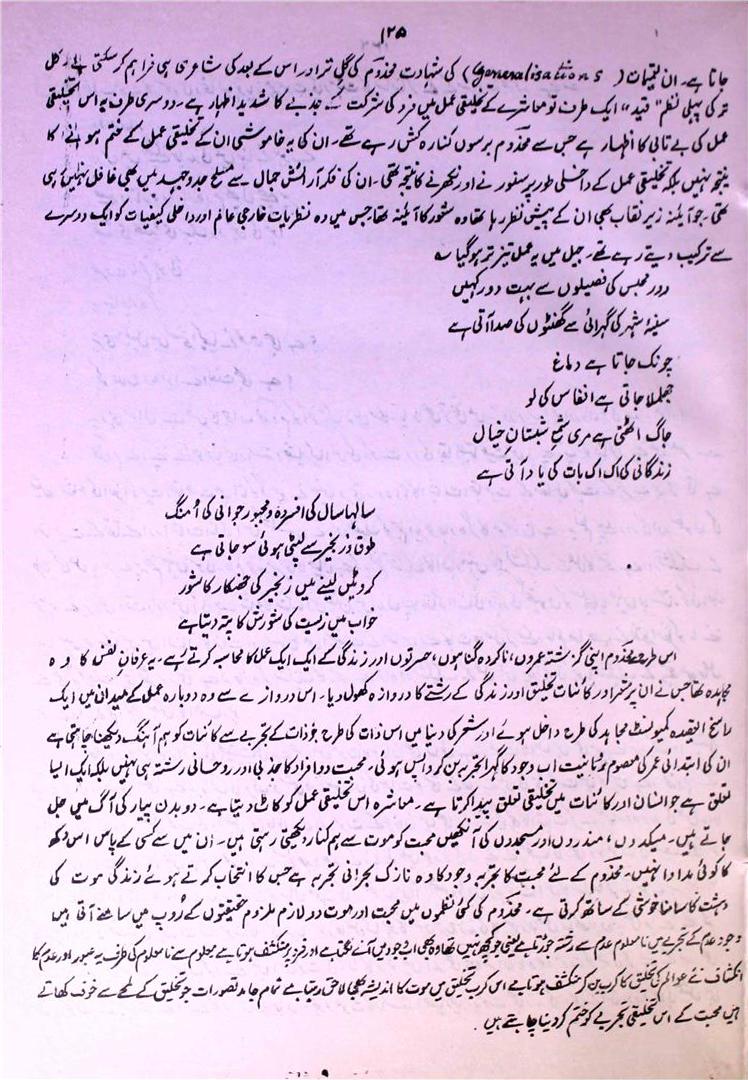 ۱۲۵
جاتا ہے۔ ان تعمیمات (Generalisations) کی شہادت مخدوم کی گل تر اور اس کے بعد کی شاعری ہی فراہم کر سکتی ہے۔ گل
تر کی پہلی نظم "قید" ایک طرف تو معاشرے کے تخلیقی عمل میں فرد کی شرکت کے جذبے کا شدید اظہار ہے۔ دوسری طرف یہ اس تخلیقی
عمل کی بے تابی کا اظہار ہے جس سے مخدوم برسوں کنارہ کش رہے تھے۔ ان کی یہ خاموشی ان کے تخلیقی عمل کے ختم ہونے کا
نتیجہ نہیں بلکہ تخلیقی عمل کے داخلی طور پر سنورنے اور نکھرنے کا نتیجہ تھی۔ ان کی فکر آرائش جمال سے مسلح جدوجہد میں بھی غافل نہیں رہی
تھی۔ جو آئینہ زیر نقاب بھی ان کے پیش نظر رہا تھا وہ شعور کا آئینہ تھا جس میں وہ نظریات خارجی عالم اور داخلی کیفیات کو ایک دوسرے
سے ترکیب دیتے رہے تھے۔ جیل میں یہ عمل تیز تر ہو گیا ؎
دور محبس کی فصیلوں سے بہت دور کہیں
سینۂ شہر کی گہرائی سے گھنٹوں کی صدا آتی ہے
چونک جاتا ہے دماغ
جھلملا جاتی ہے انفاس کی لو
جاگ اٹھتی ہے مری شمع شبستان خیال
زندگانی کی اک اک بات کی یاد آتی ہے
سالہا سال کی افسردہ و مجبور جوانی کی امنگ
طوق و زنجیر سے لپٹی ہوئی سو جاتی ہے
کروٹیں لینے میں زنجیر کی جھنکار کا شور
خواب میں زیست کی شورش کا پتہ دیتا ہے
اس طرح مخدوم اپنی گزشتہ عمروں، ناکردہ گناہوں، حسرتوں اور زندگی کے ایک ایک عمل کا محاسبہ کرتے رہے۔ یہ عرفان نفس کا وہ
مجاہدہ تھا جس نے ان پر شعر اور کائنات تخلیق اور زندگی کے رشتے کا دروازہ کھول دیا۔ اس دروازے سے وہ دوبارہ عمل کے میدانی میں ایک
راسخ العقیدہ کمیونسٹ مجاہد کی طرح داخل ہوئے اور شعر کی دنیا میں اس ذات کی طرح جو ذات کے تجربے سے کائنات کو ہم آہنگ دیکھنا چاہتی ہے
ان کی ابتدائی عمر کی معصوم رومانیت اب وجود کا گہرا تجربہ بن کر واپس ہوئی۔ محبت دو افراد کا جذبی اور روحانی رشتہ ہی نہیں بلکہ ایک ایسا
تعلق ہے جو انسان اور کائنات میں تخلیقی تعلق پیدا کرتا ہے۔ معاشرہ اس تخلیقی عمل کو کاٹ دیتا ہے۔ دو بدن پیار کی آگ میں جل
جاتے ہیں۔ میکدوں، مندروں اور مسجدوں کی آنکھیں محبت کو موت سے ہم کنار دیکھتی رہتی ہیں۔ ان میں سے کسی کے پاس اس دکھ
کا کوئی مداوا نہیں۔ مخدوم کے لئے محبت کا تجربہ وجود کا وہ نازک بحرانی تجربہ ہے جس کا انتخاب کرتے ہوئے زندگی موت کی
دہشت کا سامنا خوشی کے ساتھ کرتی ہے۔ مخدوم کی کئی نظموں میں محبت اور موت دو لازم ملزوم حقیقتوں کے روپ میں سامنے آتی ہیں
وجود عدم کے تجربے میں نامعلوم عدم سے رشتہ جوڑتا ہے یعنی جو کچھ نہیں تھا وہ بھی اب وجود میں آنے لگتا ہے اور فرد پر منکشف ہوتا ہے معلوم سے نامعلوم کی طرف یہ عبور اور عدم کا
انکشاف نئے عوالم کی تخلیق کا کرب بن کر منکشف ہوتا ہے اس کرب تخلیق میں موت کا اندیشہ بھی لاحق رہتا ہے تمام جامد تصورات جو تخلیق کے لمحے سے خوف کھاتے
ہیں محبت کے اس تخلیقی تجربے کو ختم کر دینا چاہتے ہیں۔